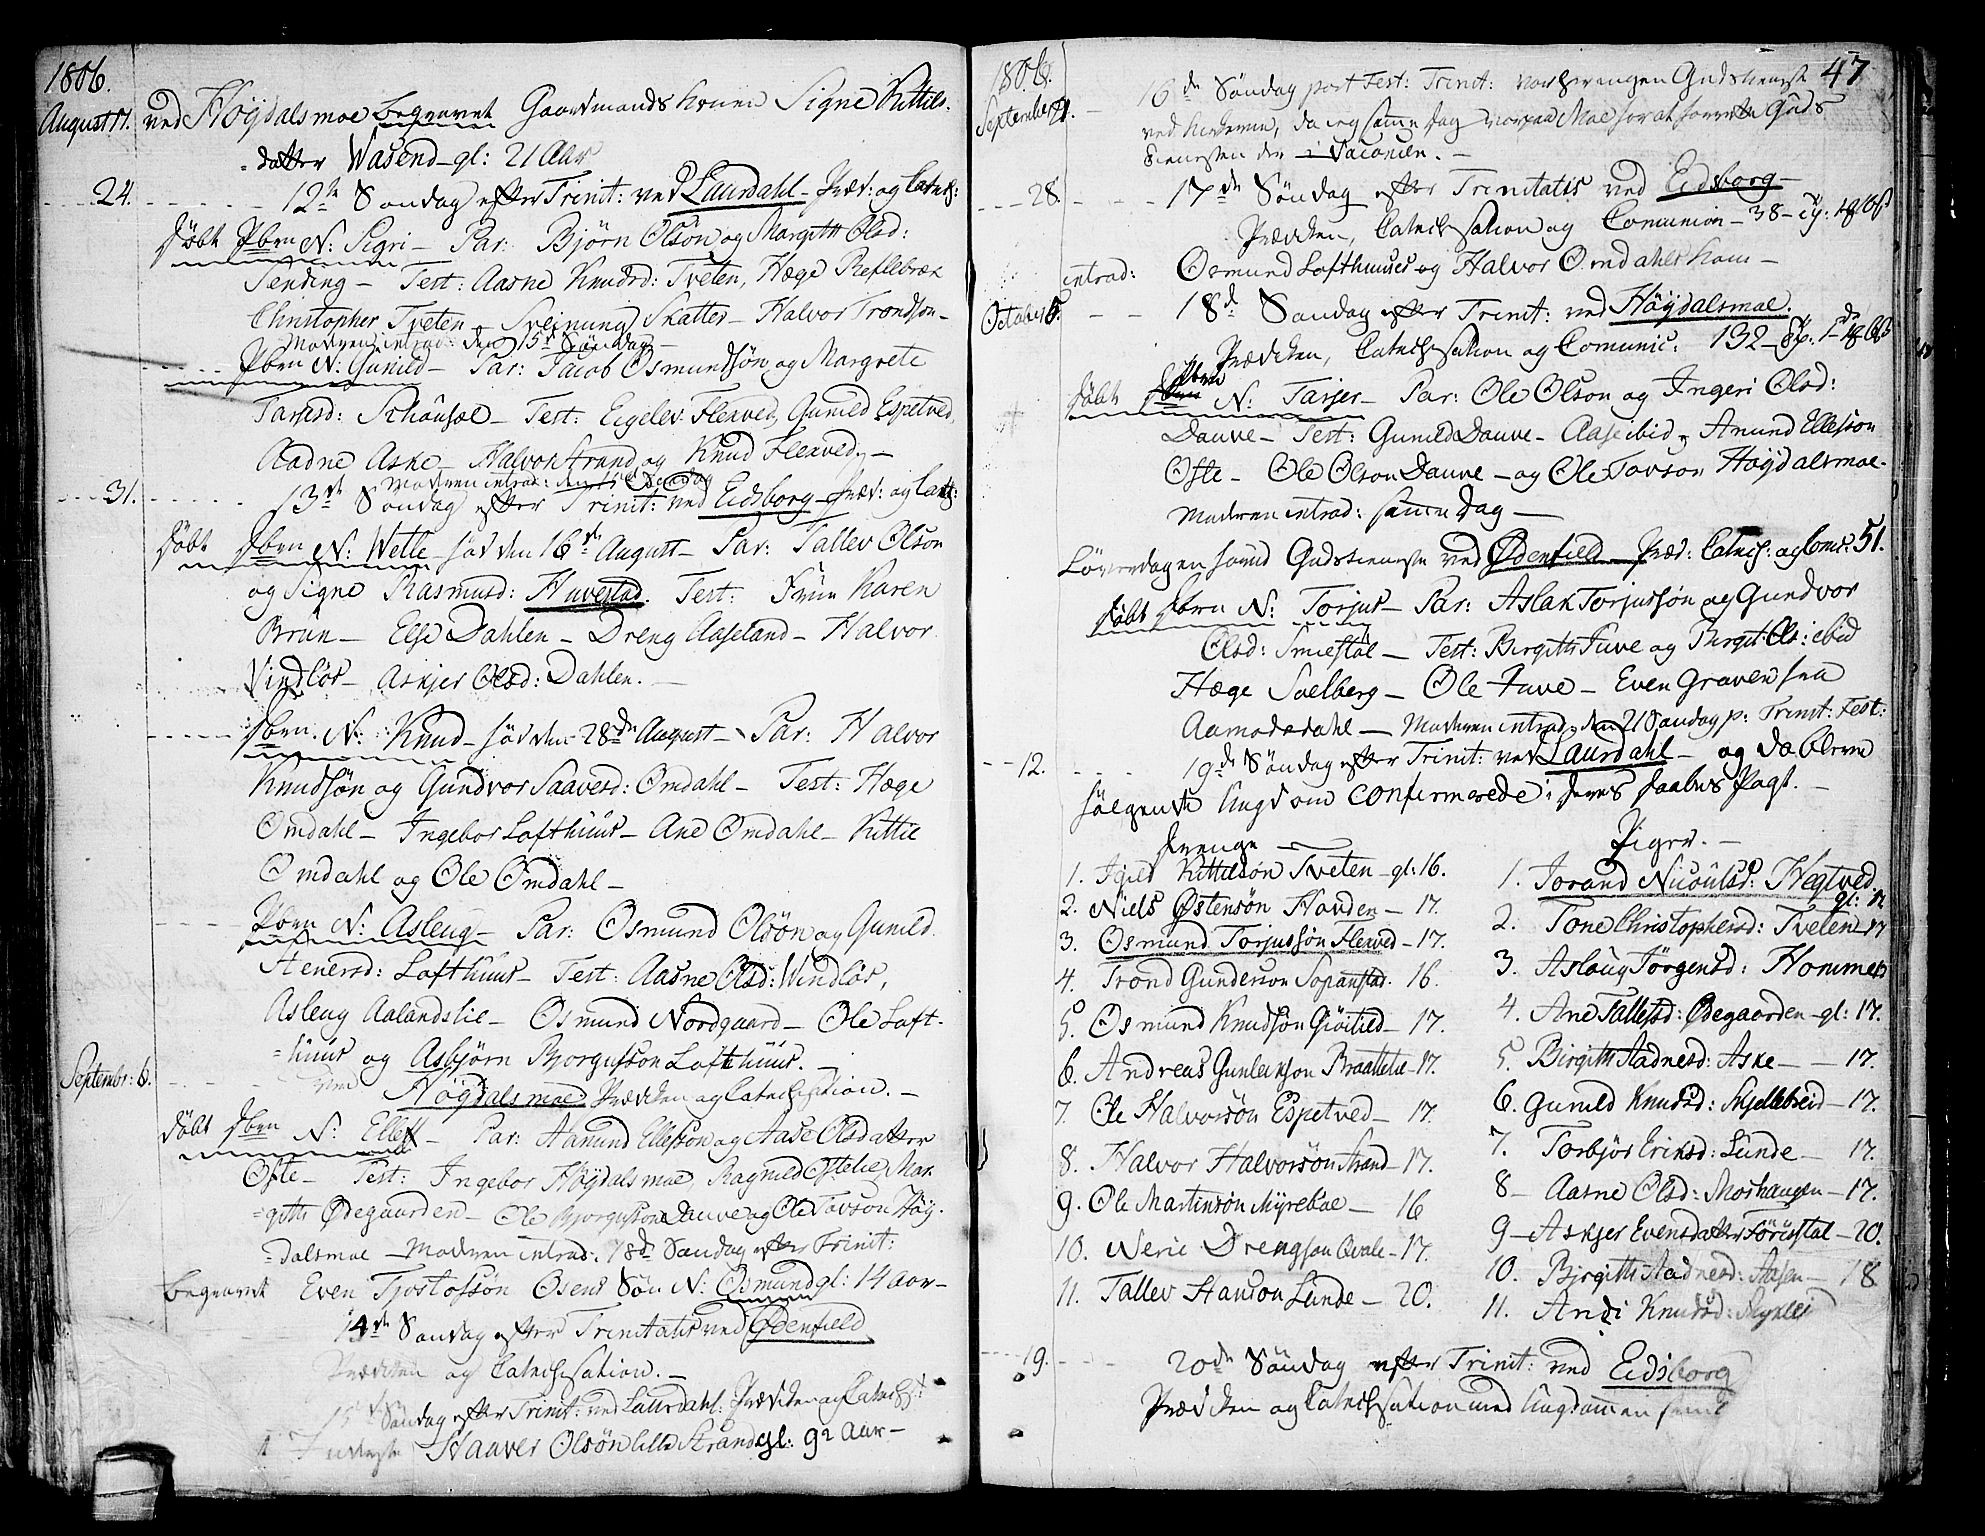 1806.
August 17. ved Høydalsmoe begravet Gaardmands Konen Signe Kittils-
datter Wasend gl: 21 Aar
24. 12te Søndag efter Trinit: ved Laurdahl - Præd: og Catech:
døbt Pbrn N: Sigri - Par: Bjørn Olsøn og Margith Olsd:
Tending - Test: Aasne Knudsd: Tveten, Hæge
Christopher Tveten - Sveinung Skatter - Halvor Trondson -
Moderen introd: den 15de Søndag -
Pbrn N: Gunild - Par: Jacob Osmundsøn og Margrete
Tarjesd: - Test: Eigelev Flexved, Gunild Espetved,
Aadne Aske - Halvor Strand og Knud Flexved. -
Moderen introd: den
31. 13de Søndag efter Trinit: ved Eidsborg - Præd: og Catech:
døbt Dbrn N: Wetle - fød den 16de August - Par: Tallev Olson
og Signe Rasmusd: Huvestad. Test: Frue Karen
Brun - Else Dahlen - Dreng Aaseland - Halvor
Vindlös - Askjer Olsd: Dahlen. -
Dbrn. N: Knud - fød den 28de August - Par: Halvor
Knudsøn og Gundvor Saavesd: Omdahl - Test: Hæge
Omdahl - Ingebor Lofthuus - Ane Omdahl - Kittil
Omdahl og Ole Omdahl -
Pbrn N: Asleug - Par: Osmund Olsøn og Gunild
Stenersd: Lofthuus - Test: Aasne Olsd: Windlös,
Asleug Aalandslie - Osmund Nordgaard - Ole Loft-
huus og Asbjørn Bjorgufson Lofthuus. -
Septembr: 6. ved Høgdalsmoe Prædiken og Catechisation. -
døbt Dbrn N: Ellef - Par: Aanund Ellefson og Aase Olsdatter
Ofte - Test: Ingebor Høydalsmoe, Ragnild Oftelie, Mar-
gith Ødegaarden - Ole Bjorgufson Dauve og Ole Tovson Høy-
dalsmoe - Moderen introd: 18de Søndag efter Trinit:
begravet Even Tjostofsøn Osens Søn N: Osmund gl: 14 Aar -
14de Søndag efter Trinitatis ved Ødenfield
Prædiken og Catechisation. -
15de Søndag efter Trinit: ved Laurdahl: Prædiken og Catech:
Haaver Olsøn lille Strand gl: 92 Aar -
47
1806.
September 21. 16de Søndag post Fest: Trinit: var ingen Gudstieneste
ved Kirkerne, da jeg samme Dag var paa Moe for at forrette Guds
tienesten der
28. 17de Søndag efter Trinitatis ved Eidsborg -
Prædiken, Catechisation og Comunion - 38 -
introd: Osmund Lofthuuses og Halvor Omdahls Kone -
October 5. 18de Søndag efter Trinit: ved Høydalsmoe.
Prædiken, Catechisation og Comunic: 132
døbt Pbrn N: Tarjer - Par: Ole Olson og Ingeri Olsd:
Dauve - Test: Gunild Dauve - Aase ibid, Anund Ellefson
Ofte - Ole Olson Dauve - og Ole Tovson Høydalsmoe.
Moderen introd: samme Dag -
Løverdagen holdt Gudstieneste ved Ødenfield - Præd: Catech: og Com: 51.
døbt Dbrn N: Torjus - Par: Aslak Torjussøn og Gundvor
Olsd: Smiestøl - Test: Birgith Juve og Birgit Ols: ibid
Hæge Svelberg - Ole Juve - Even Graven fra
Aamodsdahl - Moderen introd: den 21 Søndag p: Trinit: Fest:
12. 19de Søndag efter Trinit: ved Laurdahl - og da bleve
følgende Ungdom confirmerede i deres Daabes Pagt. -
Drenge - Piger. -
1. Kittilsøn Tveten - gl: 16.
2. Niels Østensøn Hovden - 17.
3. Osmund Torjussøn Flexved - 17.
4. Trond Gunderson Sopanstad. 16.
5. Osmund Knudsøn Giøitild - 17.
6. Andreas Gunleikson Braattelie - 17.
7. Ole Halvorsøn Espetved - 17.
8. Halvor Halvorsøn Strand - 17.
9. Ole Martinsøn Myreboe - 16
10. Nerie Drengson Qvale - 17.
11. Tallev Hanson Lunde - 20.
1. Jorand Nicoulsd: Hegtved.
gl:
2. Tone Christophersd: Tveten 17
3. Aslaug Jørgensd: Hommes
4. Ane Tallefsd: Ødegaarden - gl: 17.
5. Birgith Aadnesd: Aske - - 17.
6. Gunild Knudsd: Skjellebreid - 17.
7. Torbjör Eriksd: Lunde - 17.
8 - Aasne Olsd: Moshaugen - 17.
9 - Askjer Evensdatter Förustøl - 20.
10. Birgith Aadnesd: Aasen - 18
11. Knudsd:
19. 20de Søndag efter Trinit: ved Eidsborg
Prædiken og Catechisation med Ungdommen samt